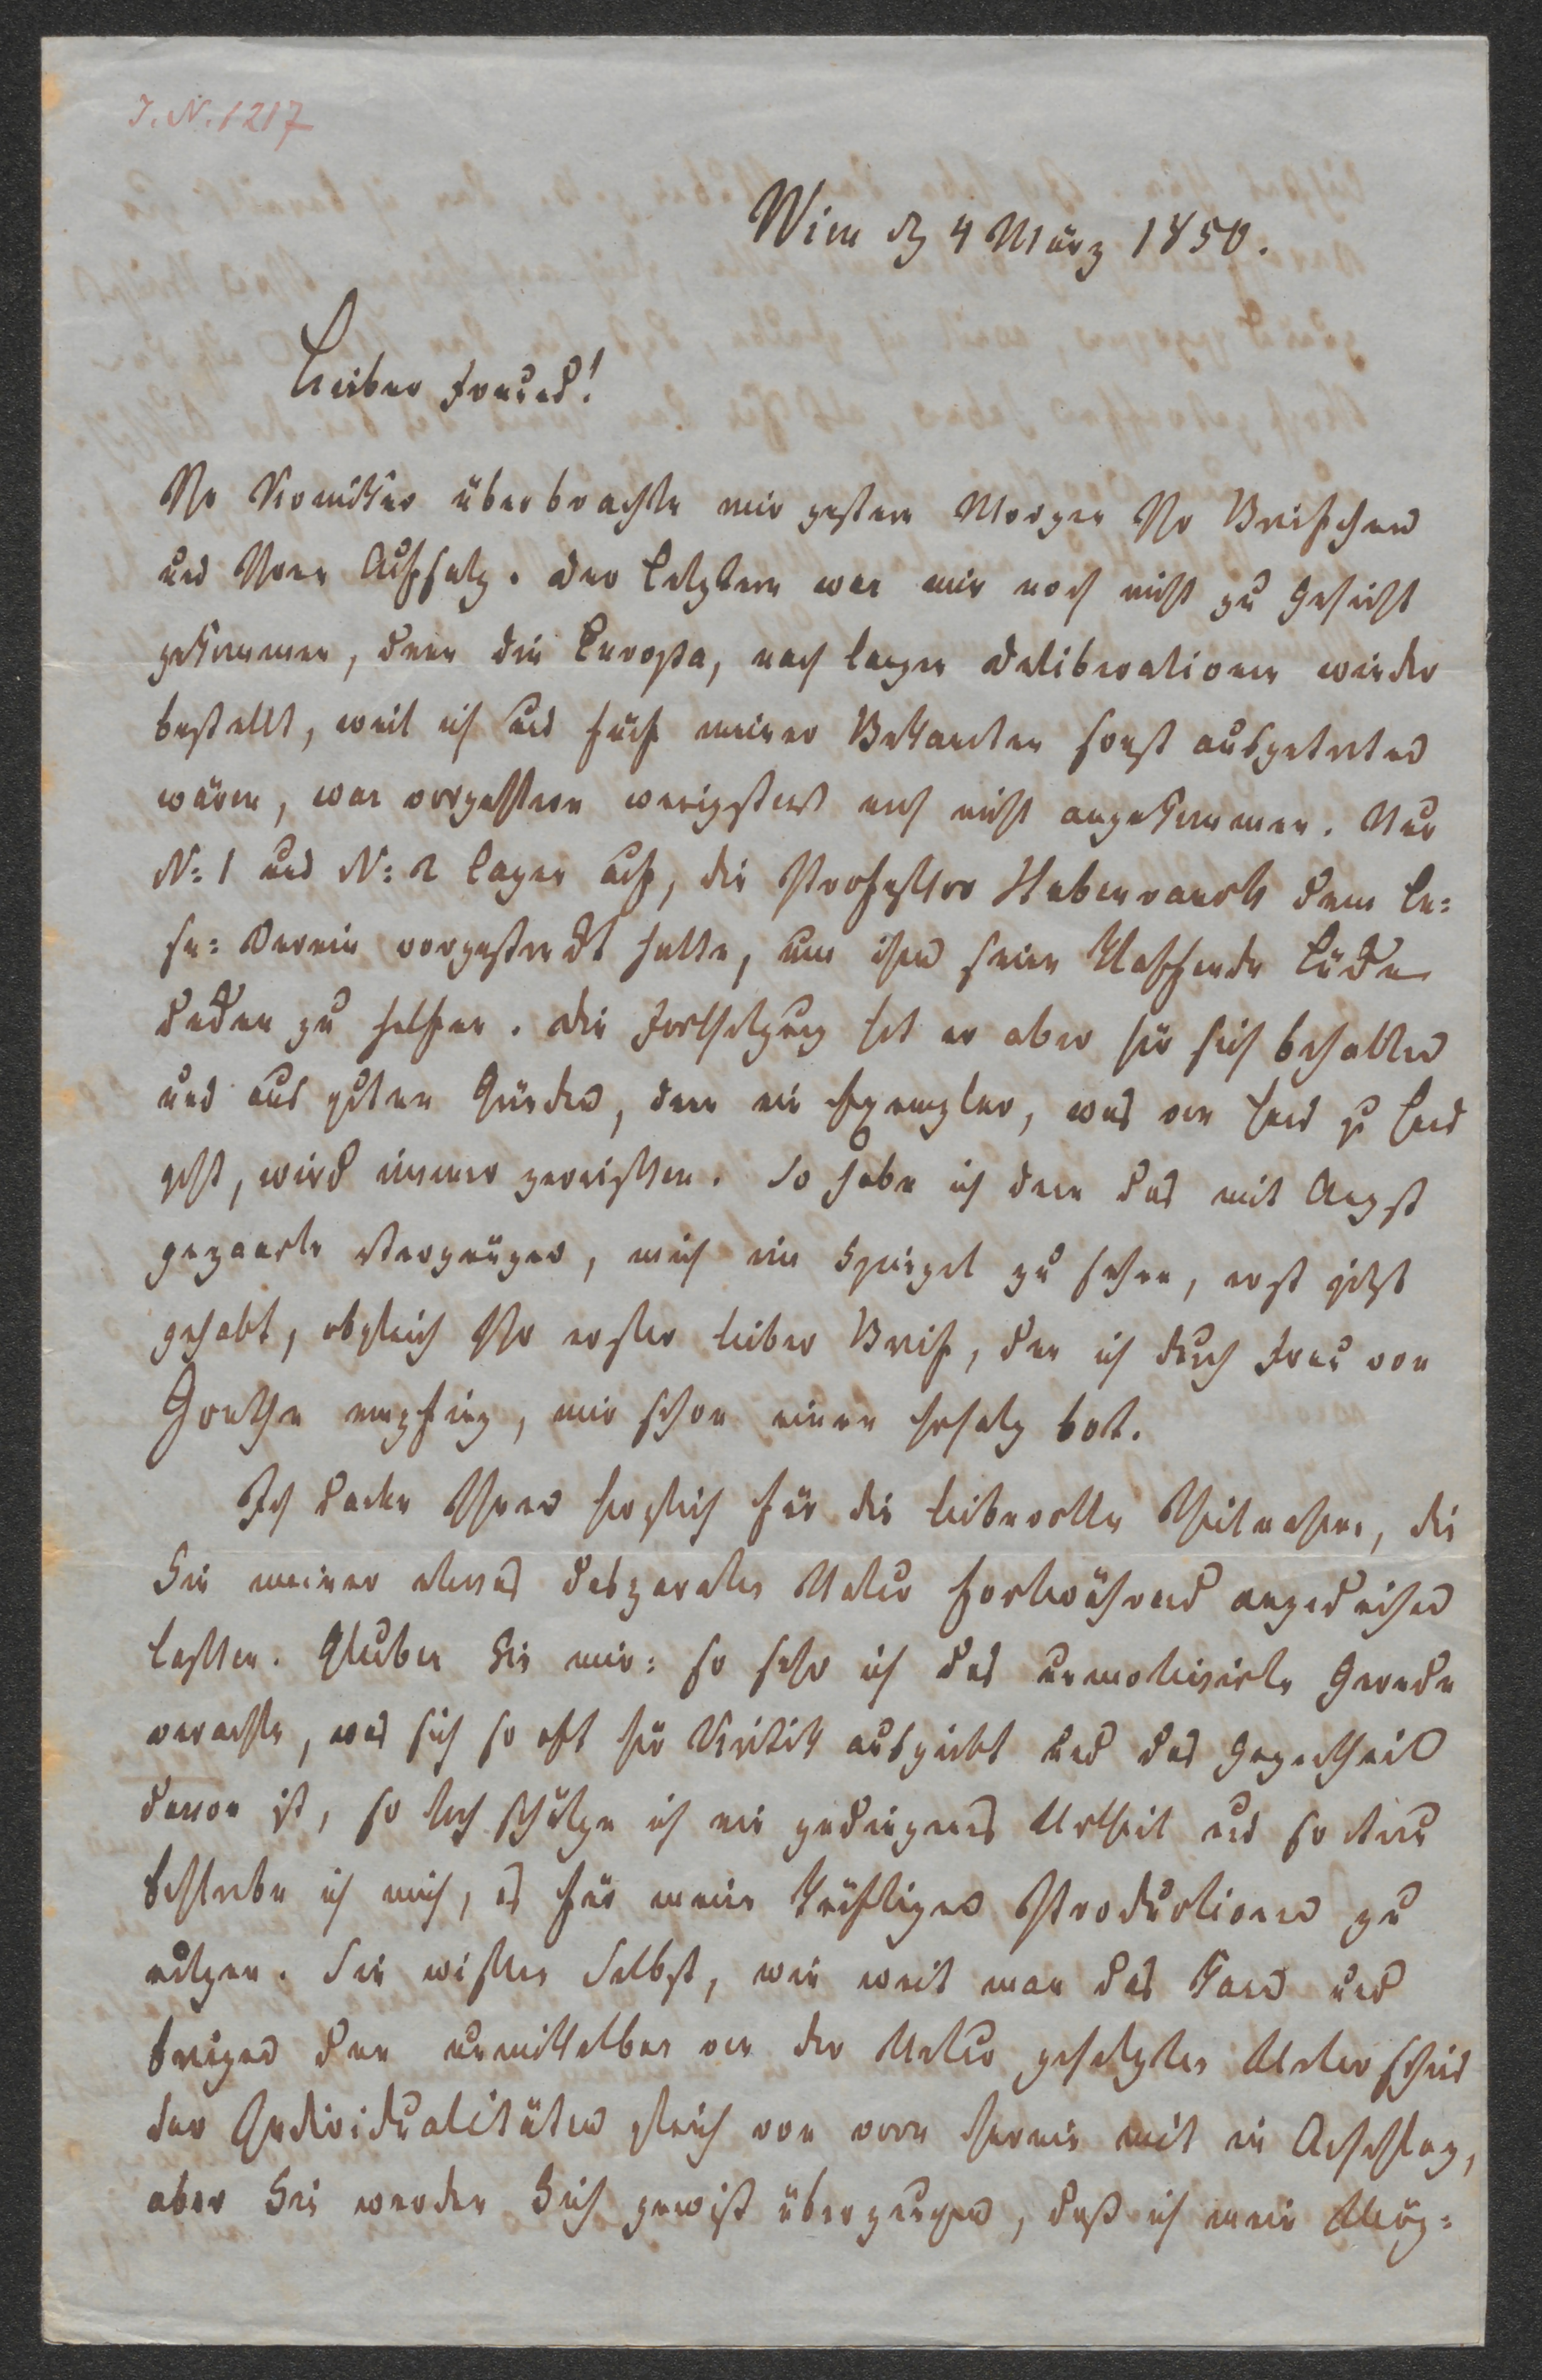 J. N. 1217
Wien d. 4 März 1850.
Lieber Freund!
Ihr Komiker überbrachte mir gestern Morgen Ihr Briefchen
und Ihren Aufsatz. Der Letztere war mir noch nicht zu Gesicht
gekommen, denn die Europa, nach langen Deliberationen wieder
bestellt, weil ich und fünf meiner Bekannten sonst ausgetreten
wären, war vorgestern wenigstens noch nicht angekommen. Nur
N: 1 und N: 2 lagen auf, die Professor Stubenrauch dem Le=
se=Verein vorgestreckt hatte, um ihm seine klaffende Lücke
decken zu helfen. Die Fortsetzung hat er aber für sich behalten
und aus guten Gründen, denn ein Exemplar, was von Hand zu Hand
geht, wird immer zerrissen. So habe ich denn das mit Angst
gepaarte Vergnügen, mich im Spiegel zu sehen, erst jetzt
gehabt, obgleich Ihr erster lieber Brief, den ich durch Frau von
Goethe empfing, mir schon einen Ersatz bot.
Ich danke Ihnen herzlich für die liebevolle Theilnahme, die
Sie meiner etwas desperaten Natur fortwährend angedeihen
lassen. Glauben Sie mir: so sehr ich das unmotivirte Gerede
verachte, was sich so oft für Kritik ausgiebt und das Gegentheil
davon ist, so hoch schätze ich ein gediegenes Urtheil und so treu
bestrebe ich mich, es für meine künftigen Productionen zu
nutzen. Sie wissen selbst, wie weit man das kann und
bringen den unmittelbar von der Natur gesetzten Unterschied
der Individualitäten gleich von vorn herein mit in Anschlag,
aber Sie werden Sich gewiß überzeugen, daß ich mein Mög=